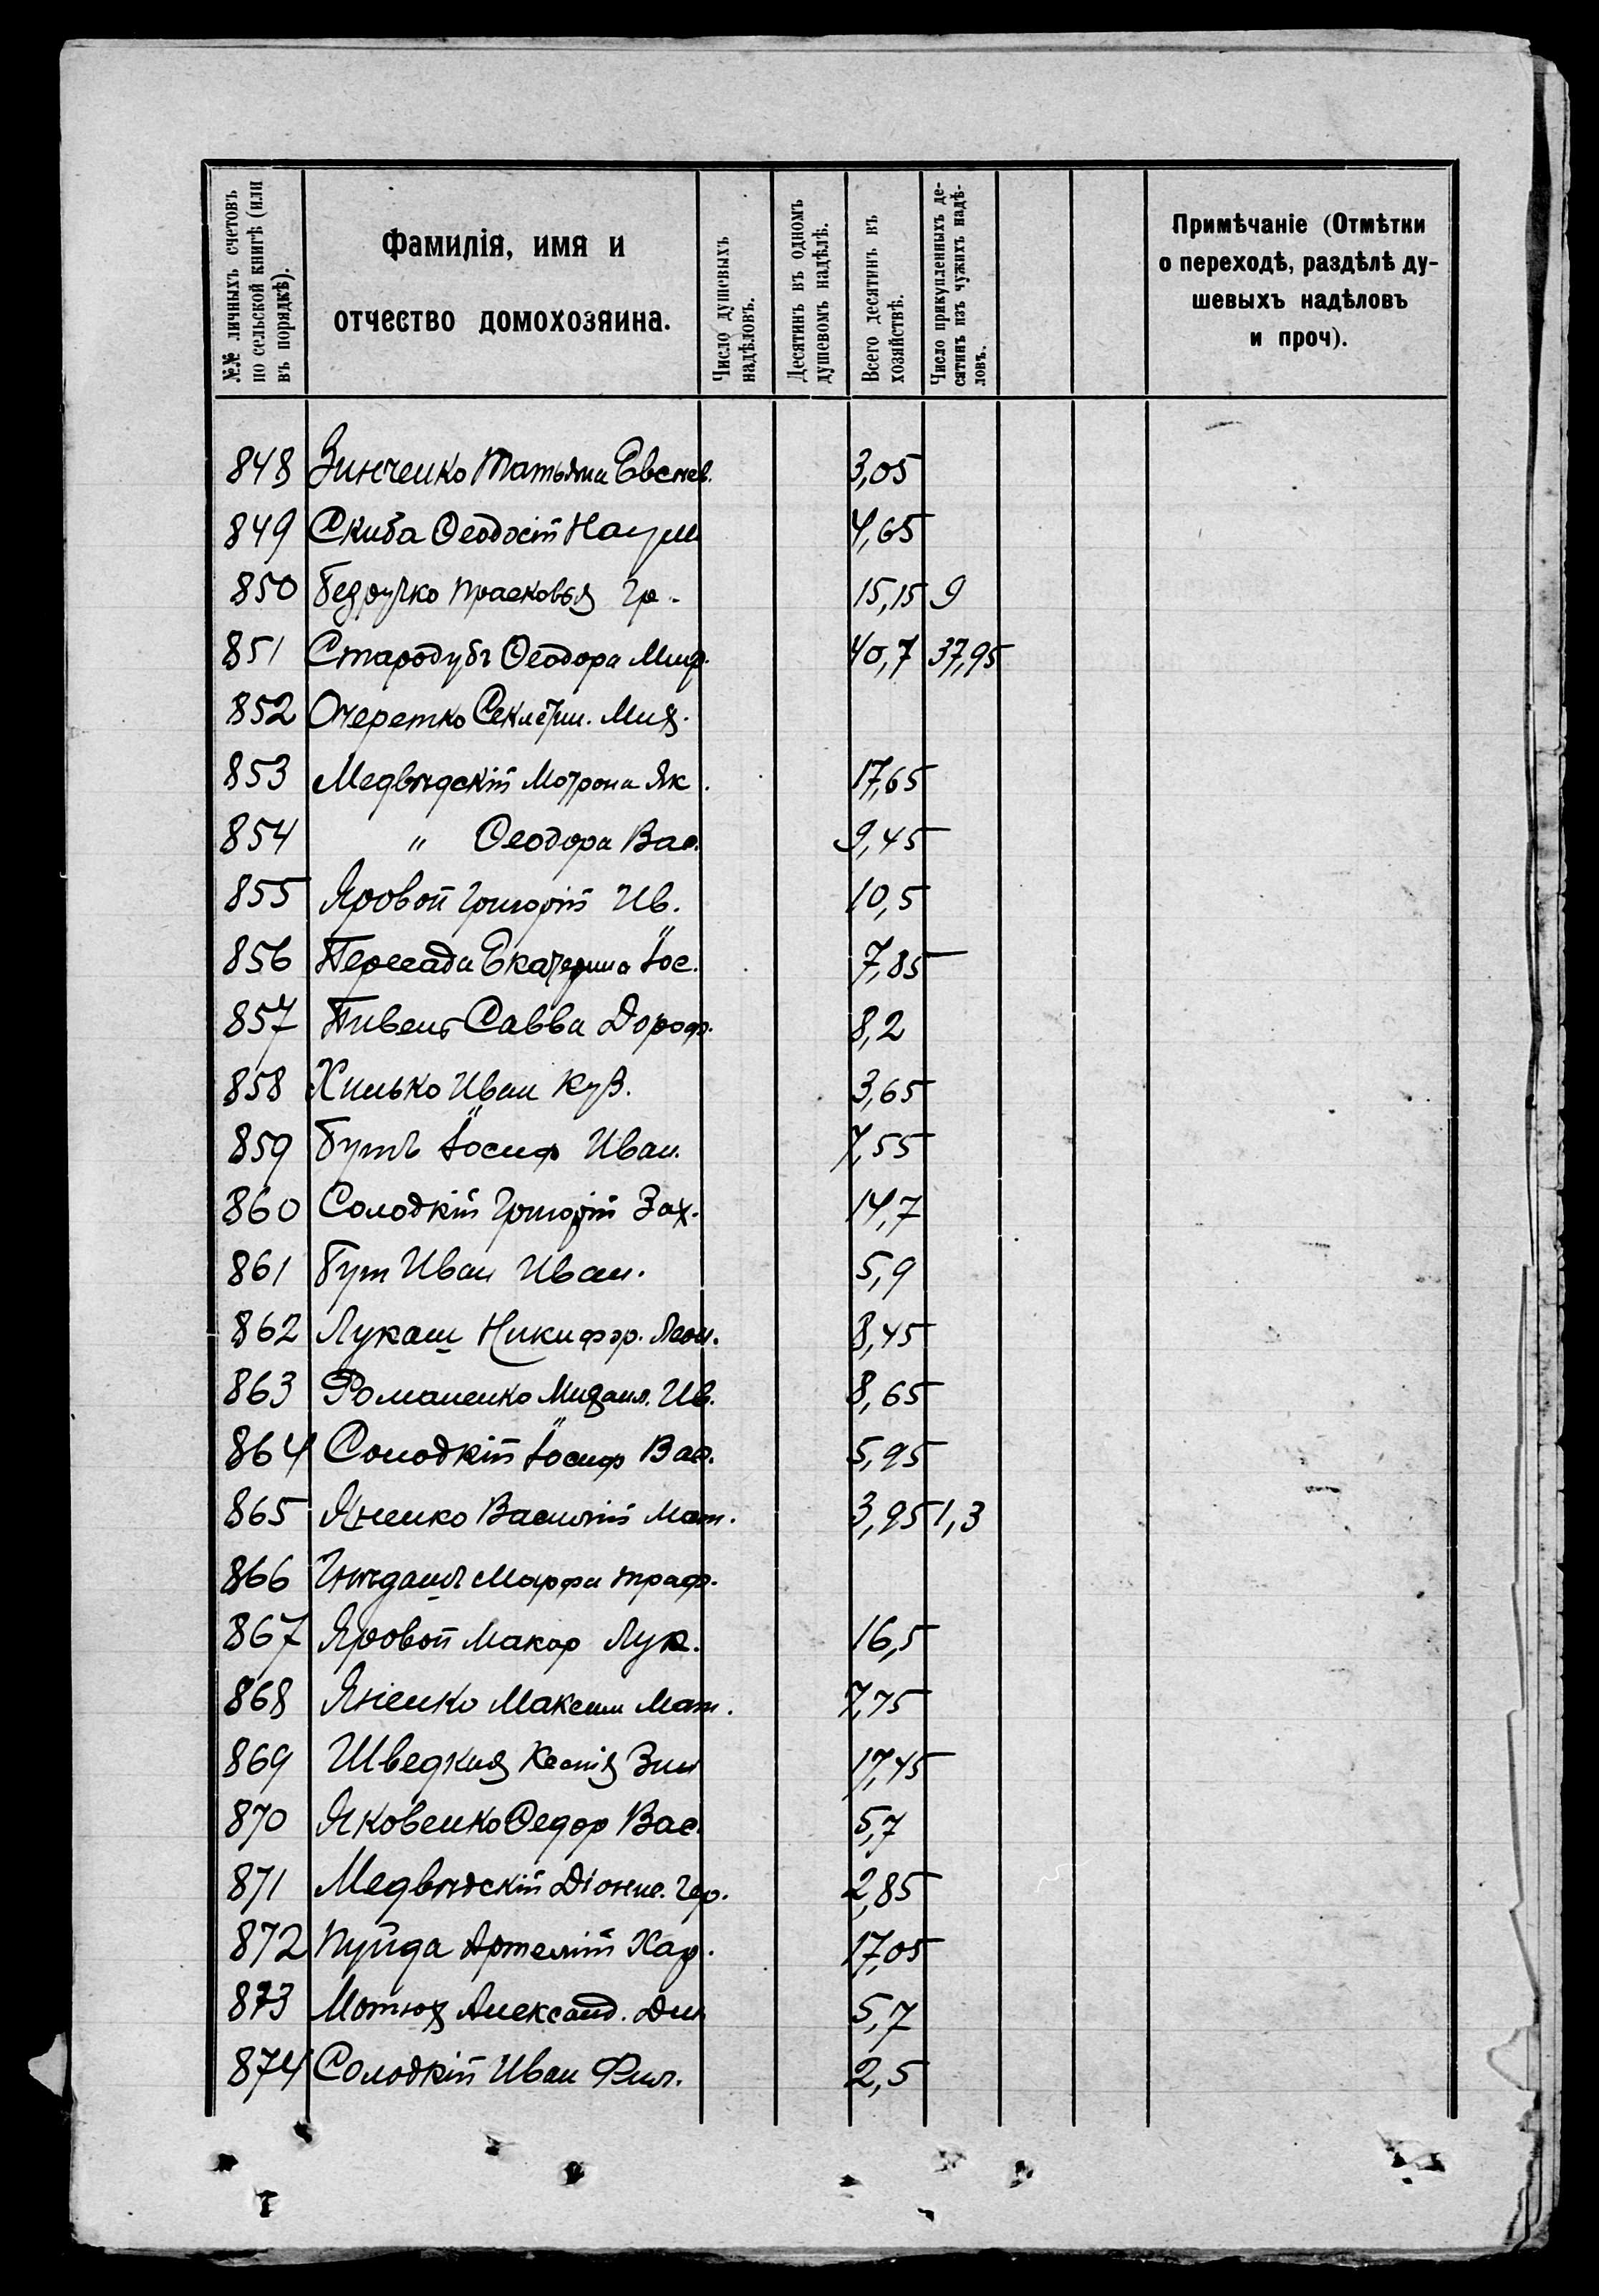 №№ личныхъ счетовъ по сельской книгѣ (или въ порядкѣ).
Фамилія, имя и
отчество домохозяина.
Число душевыхъ надѣловъ.
Десятинъ въ одномъ душевомъ надѣлѣ.
Всего десятинъ въ хозяйствѣ.
Число прикупленныхъ десятинъ изъ чужихъ надѣловъ.
Примѣчаніе (Отмѣтки
о переходѣ, раздѣлѣ ду-
шевыхъ надѣловъ
и проч).
848 Зинченко Татьяна Евснев. 3,05
849 Скиба Ѳеодосій Наум 4,65
850 Прасковья Гр. 15,15 9
851 Стародубъ Ѳеодора Мир. 40,7 37,95
852 Очеретко Секлетин. Мих.
853 Медвѣдскій Мотрона Як. 17,65
854 " Ѳеодора Вас. 9,45
855 Яровой Григорій Ив. 10,5
856 Пересада Екатерина Іос. 7,85
857 Пивень Савва Дороф. 8,2
858 Хилько Иван Куз. 3,65
859 Бутъ Іосиф Иван. 7,55
860 Солодкій Григорій Зах. 14,7
861 Бут Иван Иван. 5,9
862 Лукаш Никифор. Леон. 8,45
863 Романенко Михаил. Ив. 8,65
864 Солодкій Іосиф Вас. 5,95
865 Яненко Василій Мат. 3,95 1,3
866 Гнѣдашъ Марфа
867 Яровой Макар Лук. 16,5
868 Яненко Максим Мат. 7,75
869 Шведкая Ксенія Зин 17,45
870 Яковенко Ѳедор Вас. 5,7
871 Медвѣдскій Діонис. Гер. 2,85
872 Пуйда Артемій Хар. 17,05
873 Мотюх Александ. Дим 5,7
874 Солодкій Иван Фил. 2,5